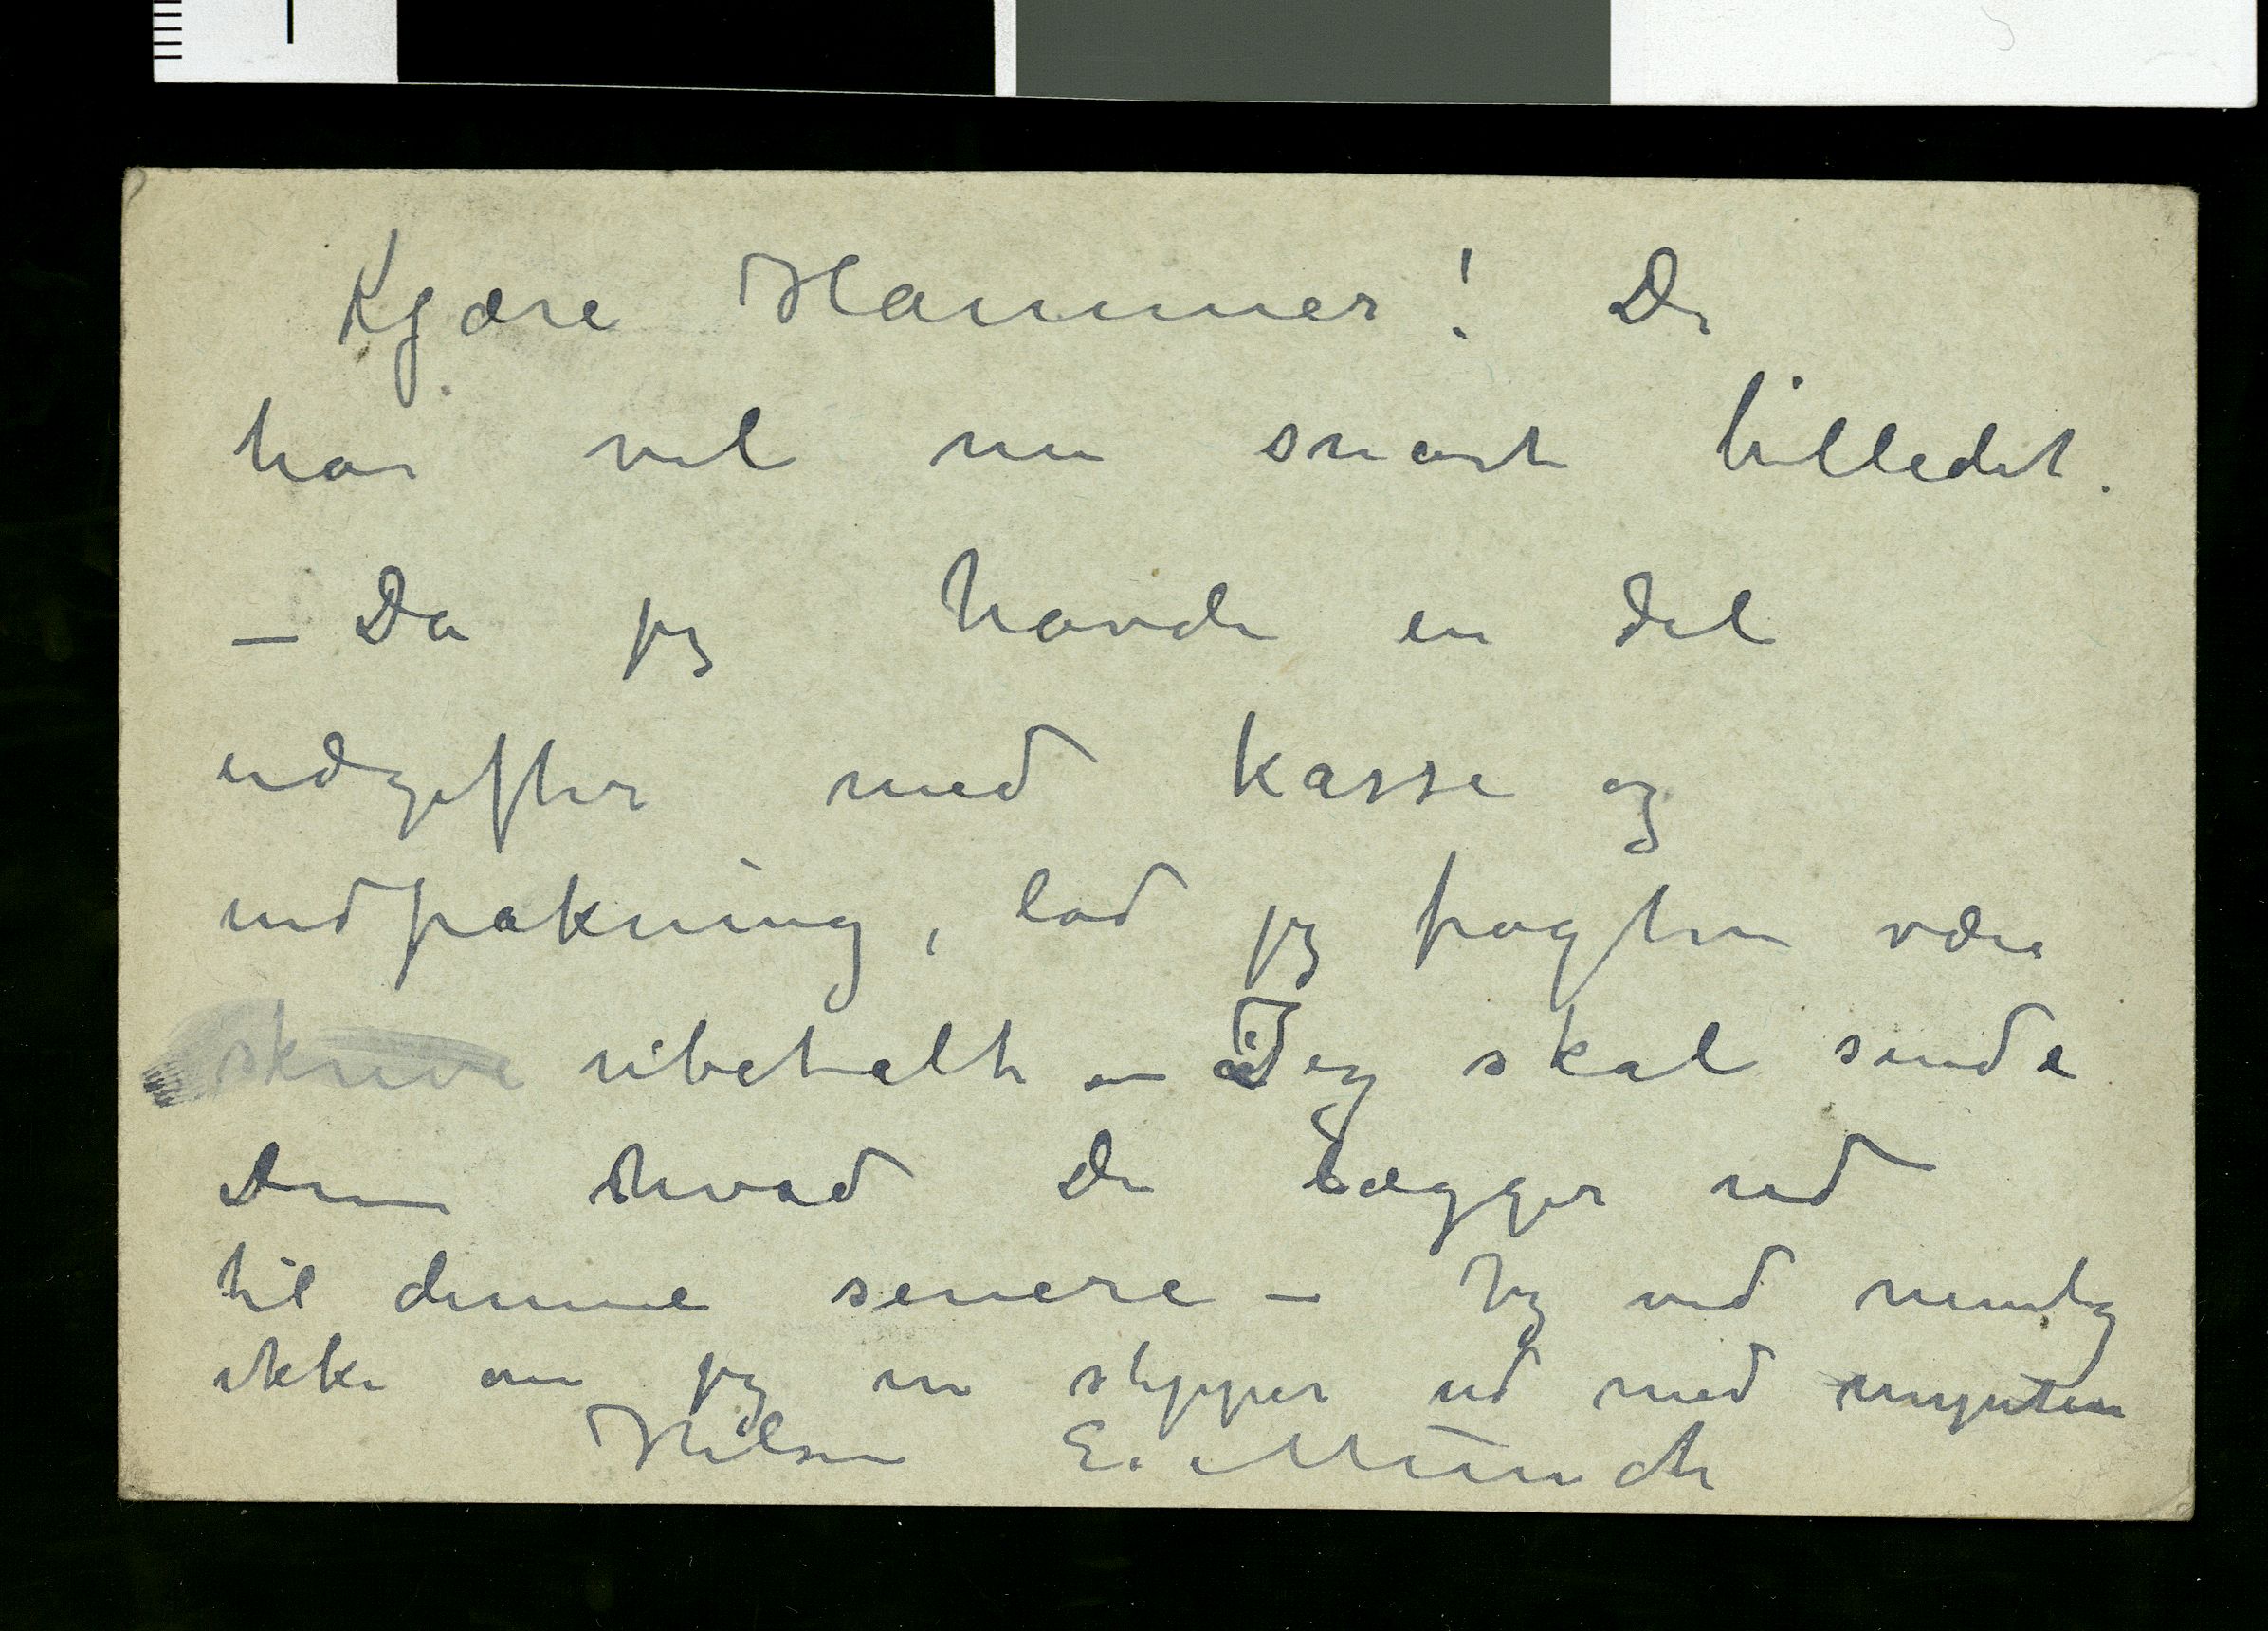 Kjære Hammer! De
har vel nu snart billedet.
– Da jeg havde en del
udgifter med kasse og
indpakning, lod jeg fragten være
skrive ubetalt – Jeg skal sende
Dem hvad De lægger ud
til denne senere – Jeg ved nemlig
ikke om jeg nu slipper ud med
Hilsen E. Munch